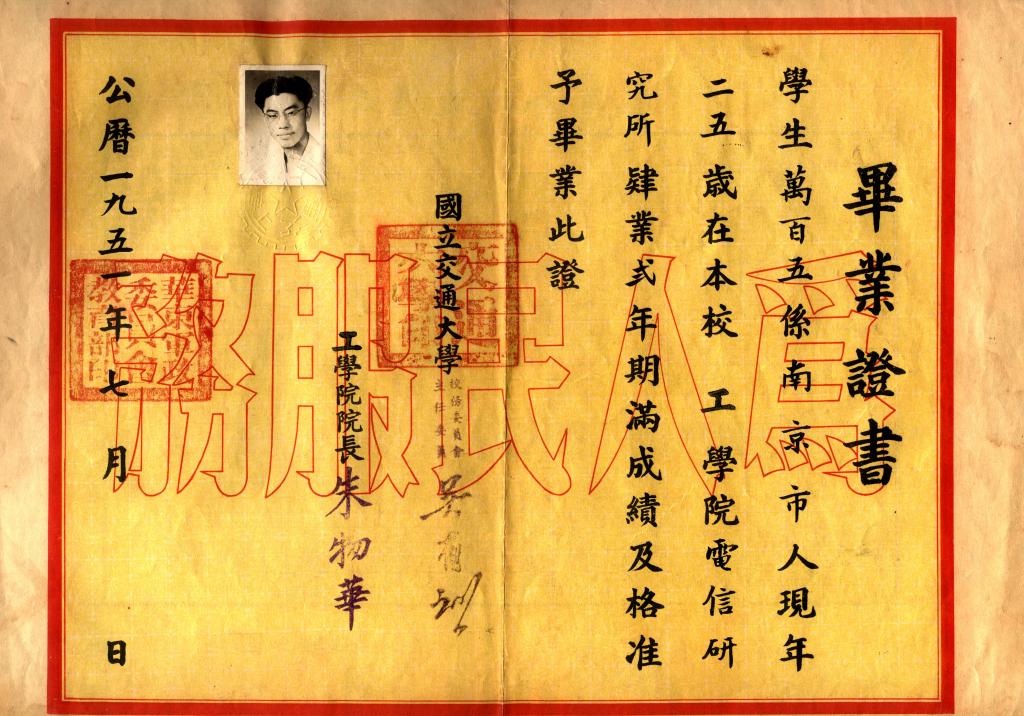 畢業證書
學生萬百五係南京市人現年
二五歲在本校 工學院電信研
究所肄業弍年期滿成績及格准
予畢業此證
國立交通大學
校務委員會
主任委員
吳有訓
工學院院長朱物華
公曆一九五一年七月 日
為人民服務